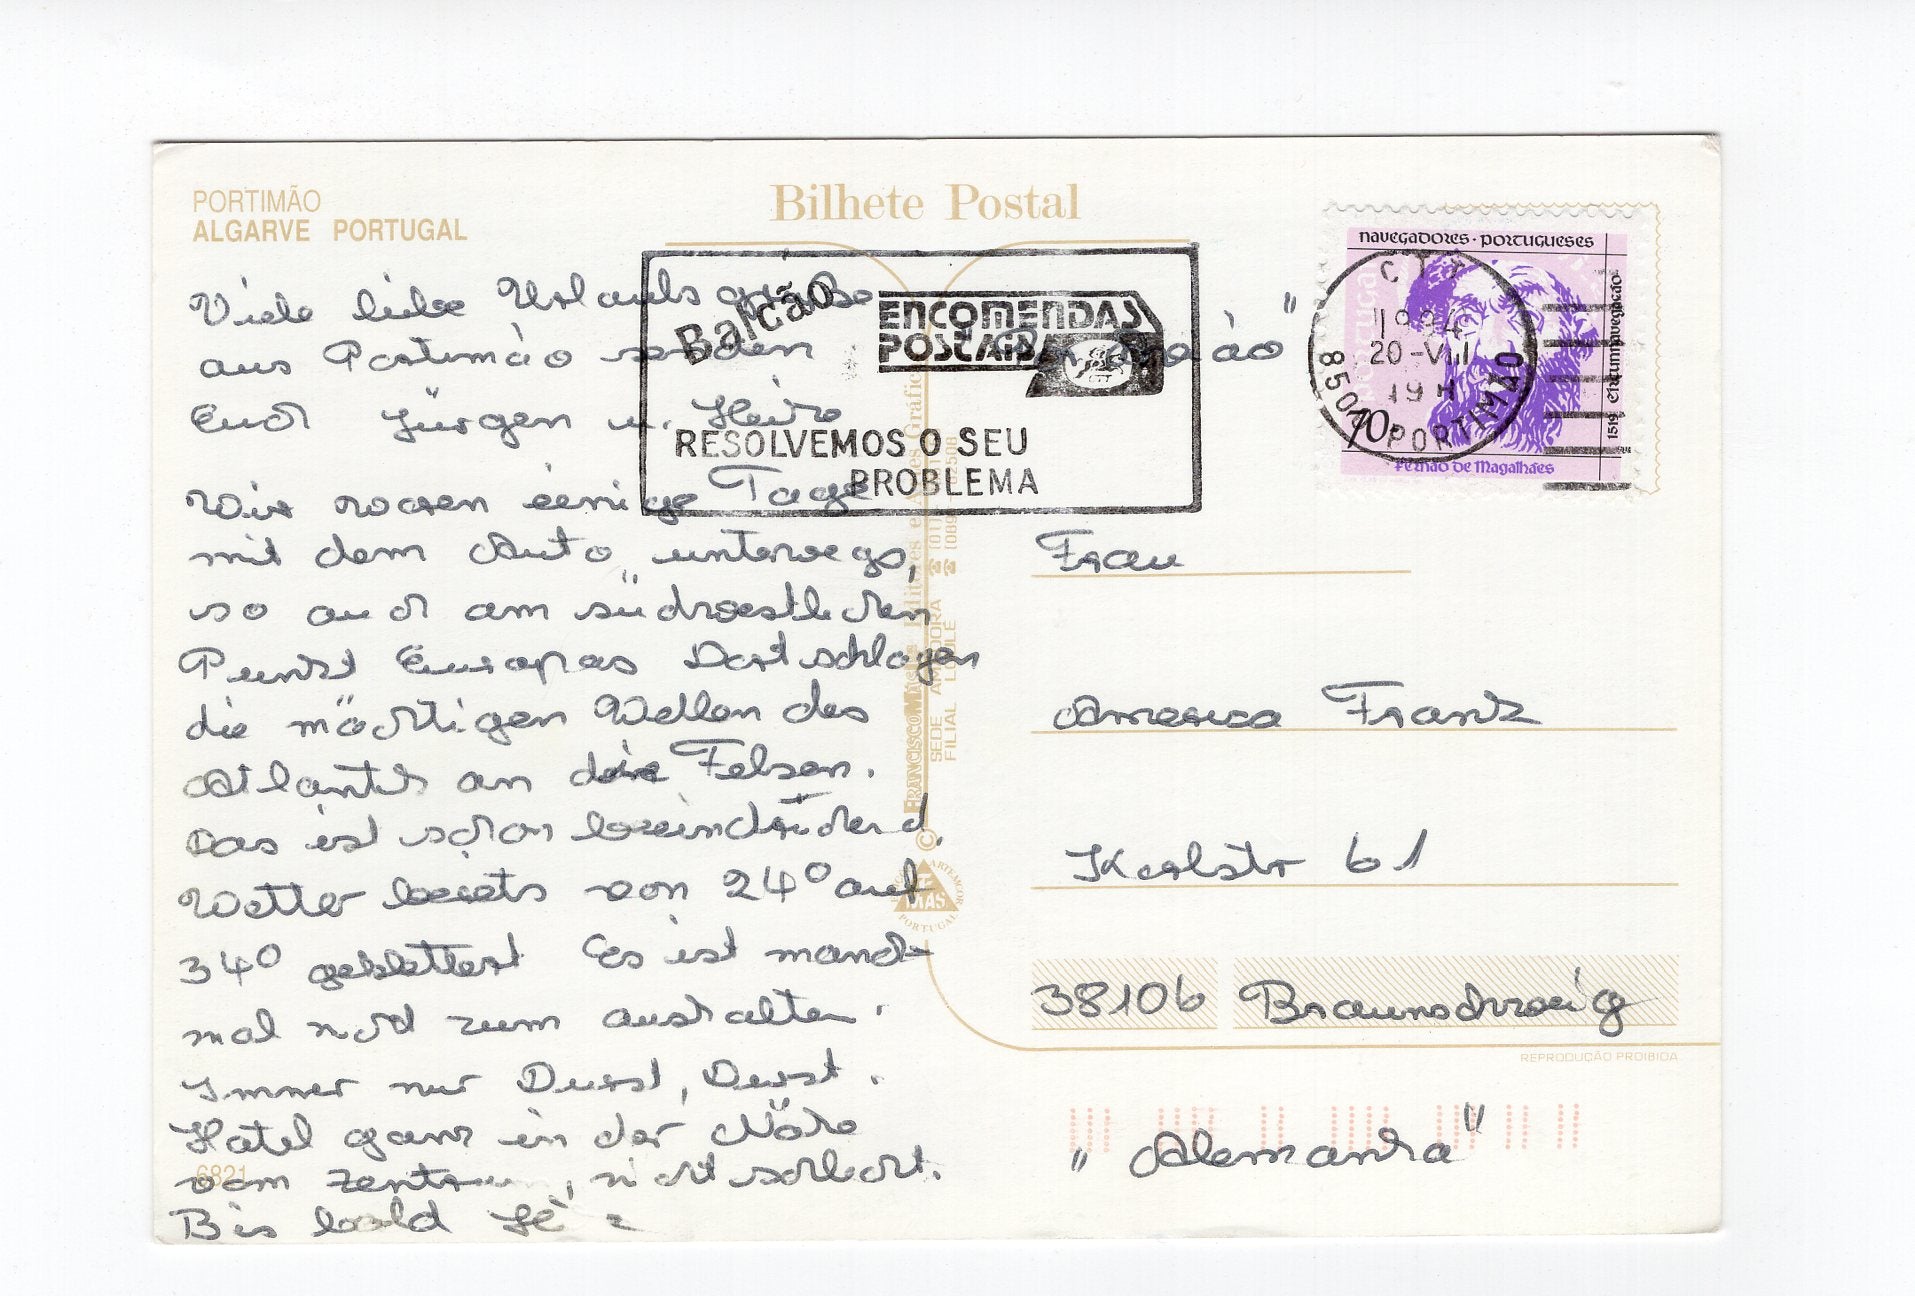 PORTIMÃO
ALGARVE PORTUGAL
Bilhete Postal
Viele liebe Urlaubsgrüße
aus Portimão senden
Euch Jürgen u. Heidre
Wir waren einige Tage
mit dem Auto unterwegs,
so auch am südwestlichen
Punkt Europas Dort schlagen
die mächtigen Wellen des
Atlantik an die Felsen.
Das ist schon beeindruckend.
Wetter bereits von 24° auf
34° geklettert Es ist manch-
mal nicht zum aushalten.
Immer nur Durst, Durst.
Hotel ganz in der Nähe
vom Zentrum, nicht schlecht.
Bis bald
6821
Balcão
ENCOMENDAS
POSTAIS
RESOLVEMOS O SEU
PROBLEMA
navegadores · portugueses
portugal
1519 circum-navegação
70.
Fernão de Magalhães
CTT
1994
20-VII
19 H
8500 PORTIMÃO
© FRANCISCO MAS
SEDE AMADORA
FILIAL LOULÉ
MAS
PORTUGAL
Frau
Frank
Karlstr 61
38106 Braunschweig
REPRODUÇÃO PROIBIDA
„Alemanha"